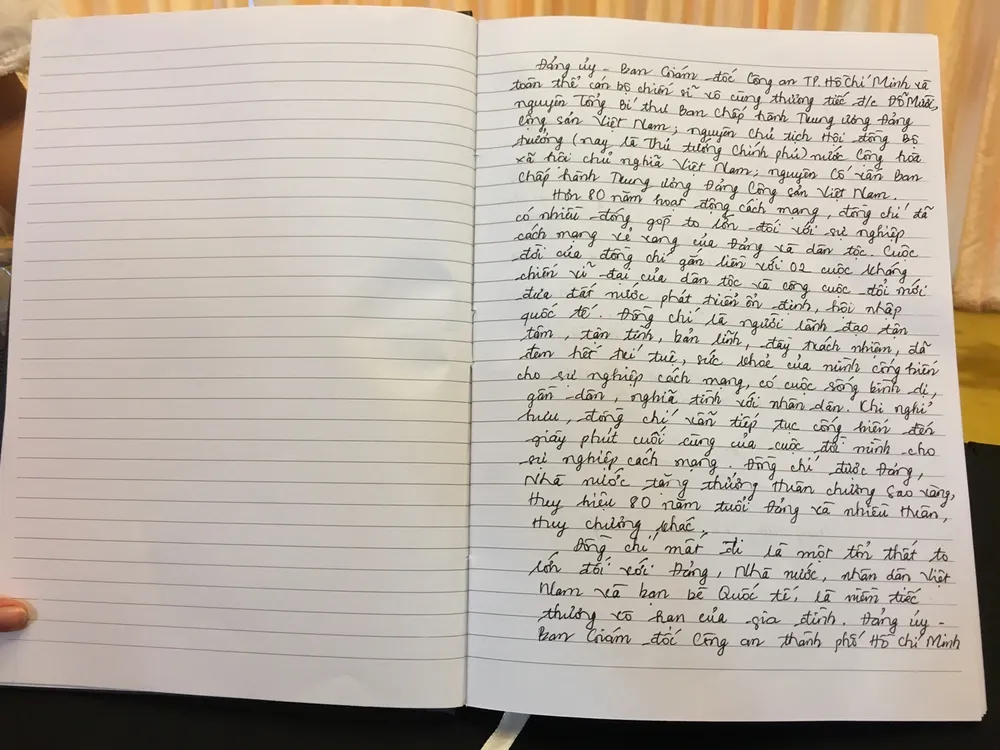 Đảng ủy - Ban Giám đốc Công an TP. Hồ Chí Minh và
toàn thể cán bộ chiến sĩ vô cùng thương tiếc đ/c Đỗ Mười,
nguyên Tổng Bí thư Ban Chấp hành Trung ương Đảng
Cộng sản Việt Nam; nguyên Chủ tịch Hội đồng Bộ
trưởng (nay là Thủ tướng Chính phủ) nước Cộng hòa
xã hội chủ nghĩa Việt Nam; nguyên Cố vấn Ban
Chấp hành Trung ương Đảng Cộng sản Việt Nam.
Hơn 80 năm hoạt động cách mạng, đồng chí đã
có nhiều đóng góp to lớn đối với sự nghiệp
cách mạng vẻ vang của Đảng và dân tộc. Cuộc
đời của đồng chí gắn liền với 02 cuộc kháng
chiến vĩ đại của dân tộc và công cuộc đổi mới
đưa đất nước phát triển ổn định, hội nhập
quốc tế. Đồng chí là người lãnh đạo tận
tâm, tận tình, bản lĩnh, đầy trách nhiệm, đã
đem hết trí tuệ, sức khoẻ của mình cống hiến
cho sự nghiệp cách mạng, có cuộc sống bình dị,
gần dân, nghĩa tình với nhân dân. Khi nghỉ
hưu, đồng chí vẫn tiếp tục cống hiến đến
giây phút cuối cùng của cuộc đời mình cho
sự nghiệp cách mạng. Đồng chí được Đảng,
Nhà nước tặng thưởng Huân chương Sao vàng,
Huy hiệu 80 năm tuổi Đảng và nhiều Huân,
Huy chương khác.
Đồng chí mất đi là một tổn thất to
lớn đối với Đảng, Nhà nước, nhân dân Việt
Nam và bạn bè Quốc tế, là niềm tiếc
thương vô hạn của gia đình. Đảng ủy -
Ban Giám đốc Công an thành phố Hồ Chí Minh